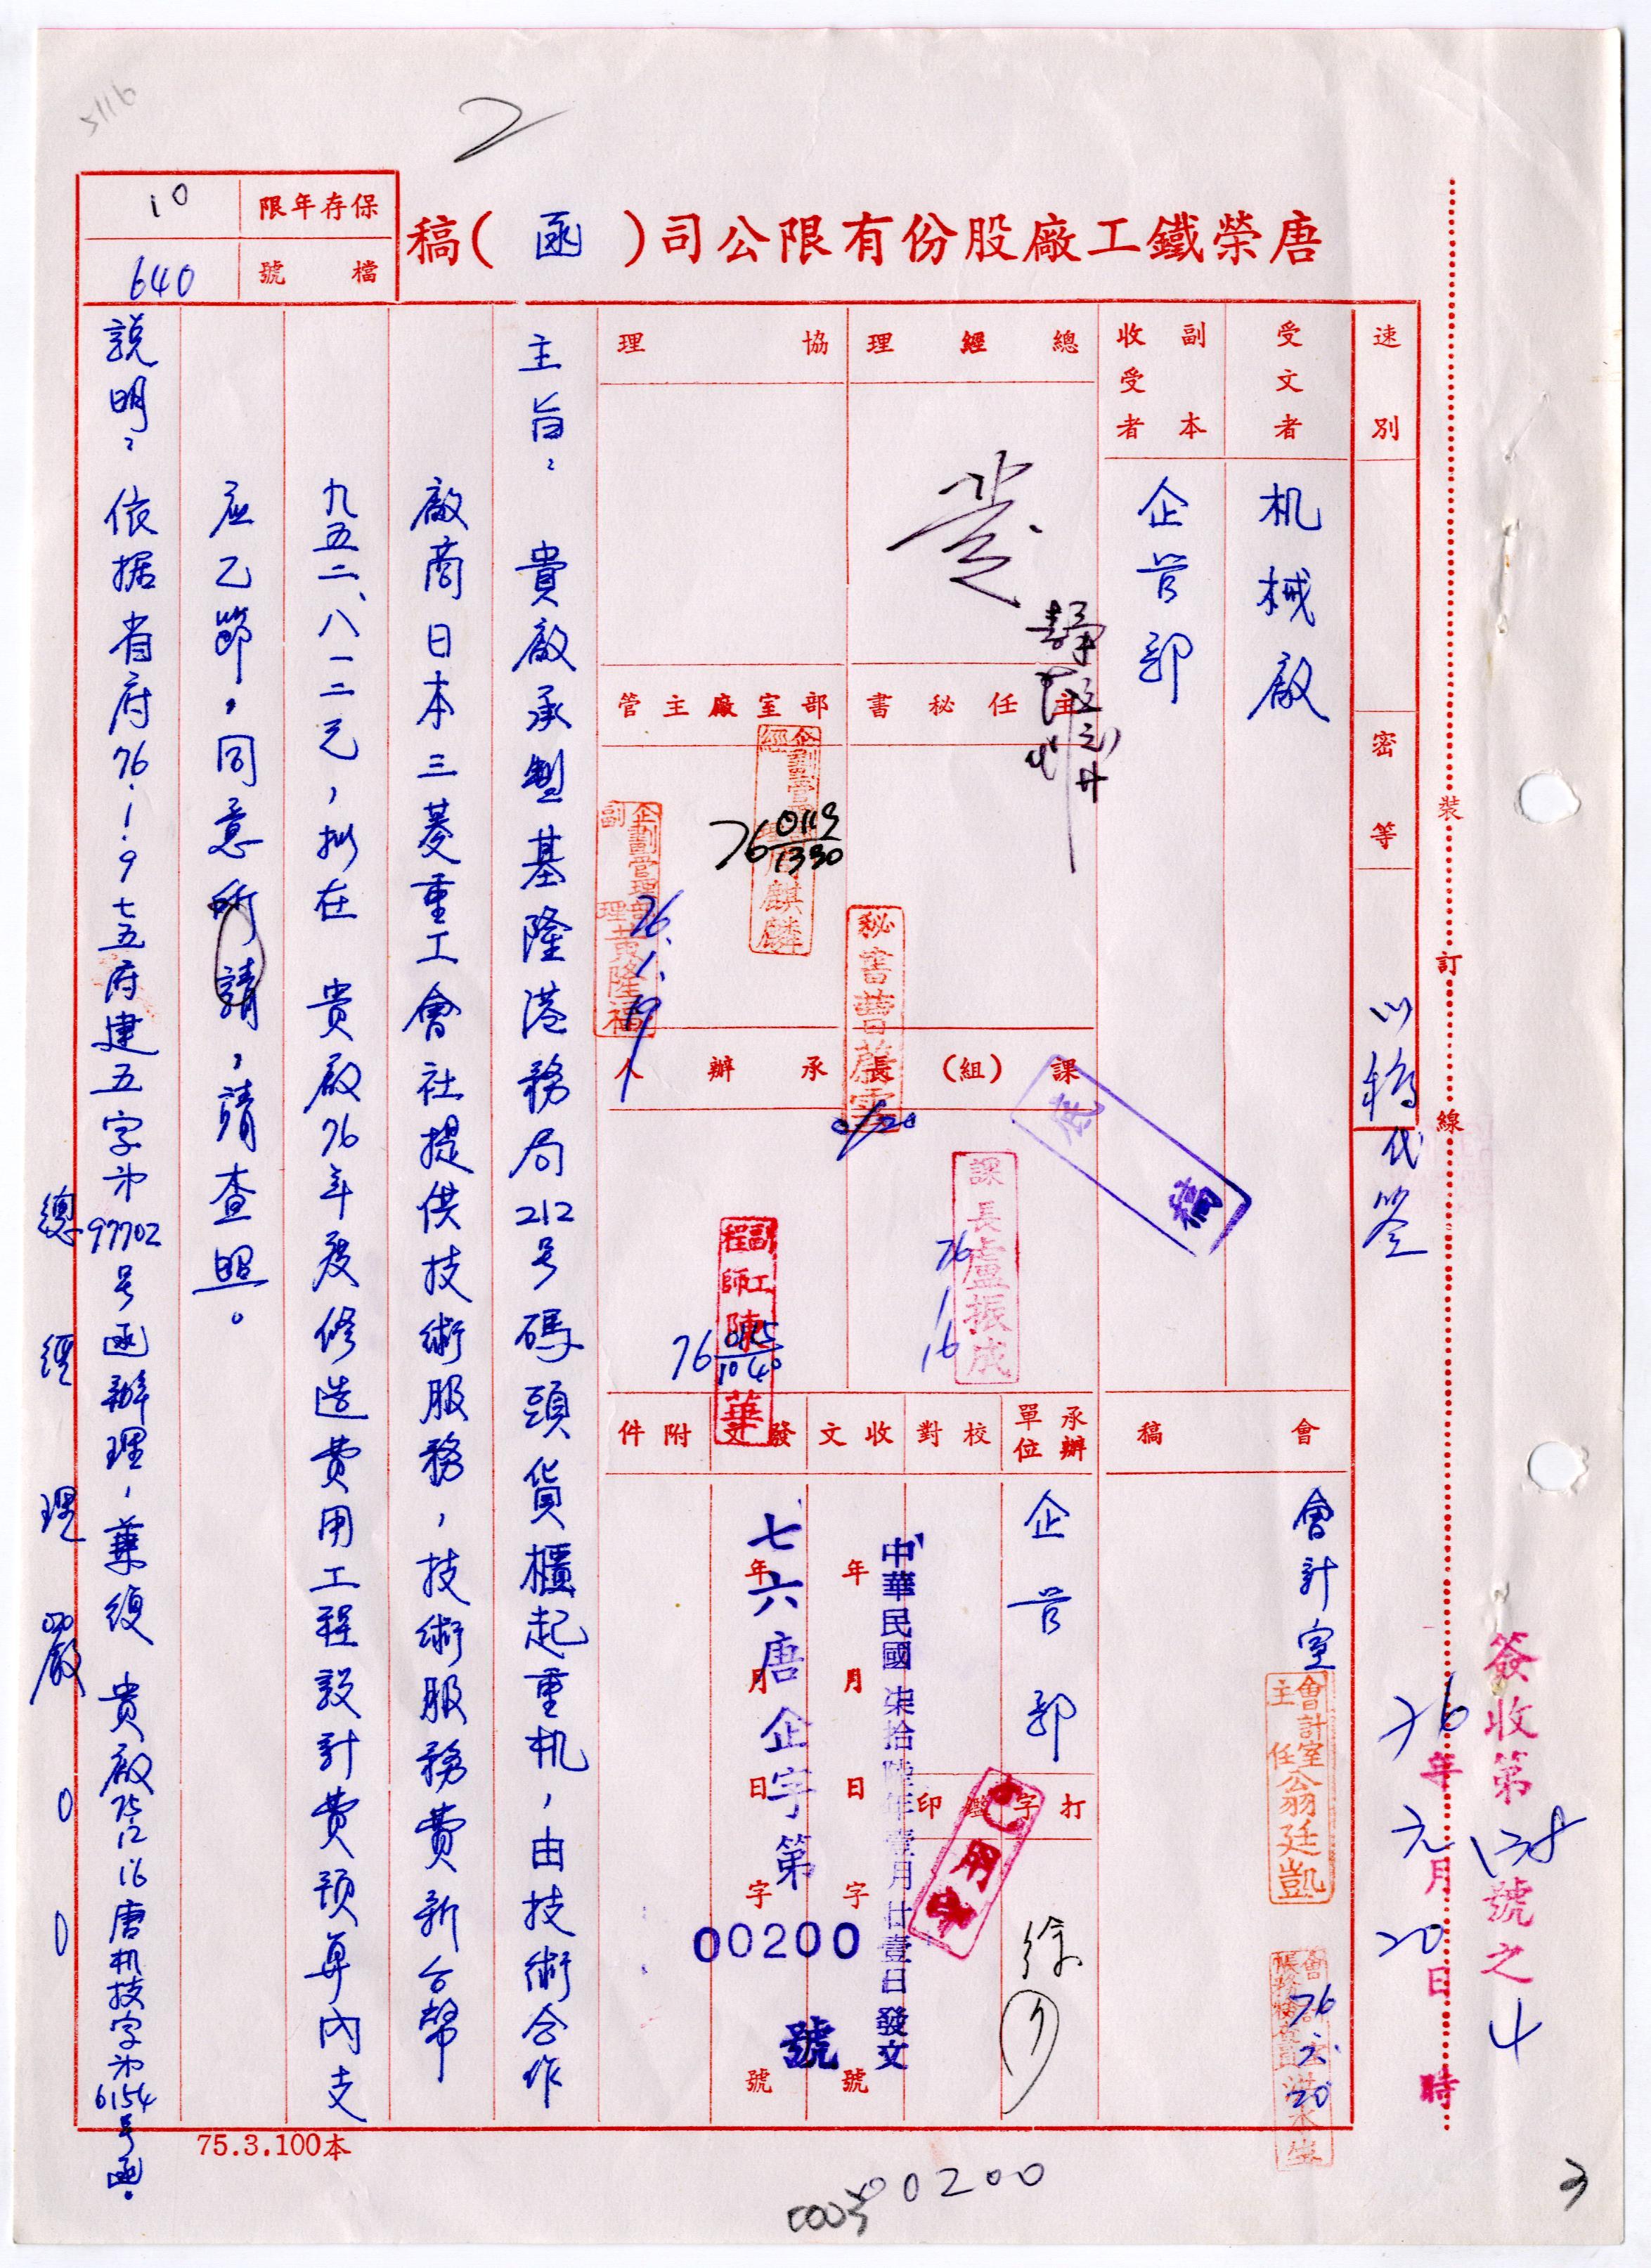 5116
2
唐榮鐵工廠股份有限公司(函)稿
保存年限
10
檔號
640
速別
密等
以稿代簽
受文者
机械廠
副本收受者
企管部
總經理
協理
主任秘書
部室廠主管
企劃管
經
麒麟
76 0119 1330
企劃管理部
副理黃隆福
76.1.19
秘書曹
課(組)長
承辦人
底稿
課長盧振成
76 1 16
副工程師陳華
76 0115 1040
會稿
會計室
會計室主任翁廷凱
76.元.20
承辦單位
企管部
校對
收文
發文
附件
打字
監印
徐
已用印
年月日字號
中華民國柒拾陸年壹月廿壹日發文
年月日字號
七六唐企字第
00200
號
主旨：貴廠承製基隆港務局212号碼頭貨櫃起重机，由技術合作
廠商日本三菱重工會社提供技術服務，技術服務費新台幣
九五二、八一二元，擬在　貴廠76年度修造費用工程設計費預算內支
應乙節，同意所請，請查照。
說明：依据省府76.1.9七五府建五字第97702号函辦理，兼復　貴廠75.12.16唐机技字第6154号函。
總經理嚴○○
裝訂線
簽收第138號之4
76年元月20日時
75.3.100本
00200
3